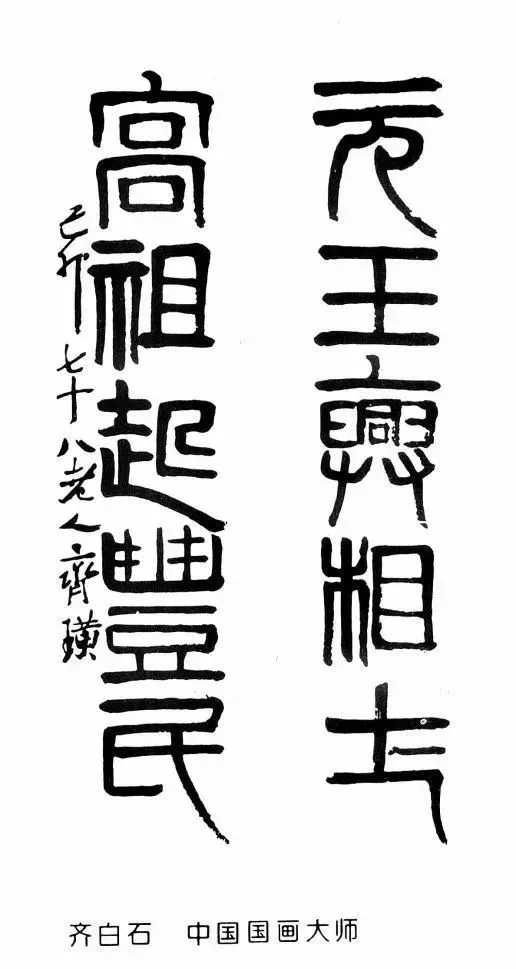 元王興相土
高祖起豐民
己卯七十八老人齊璜
齐白石 中国国画大师